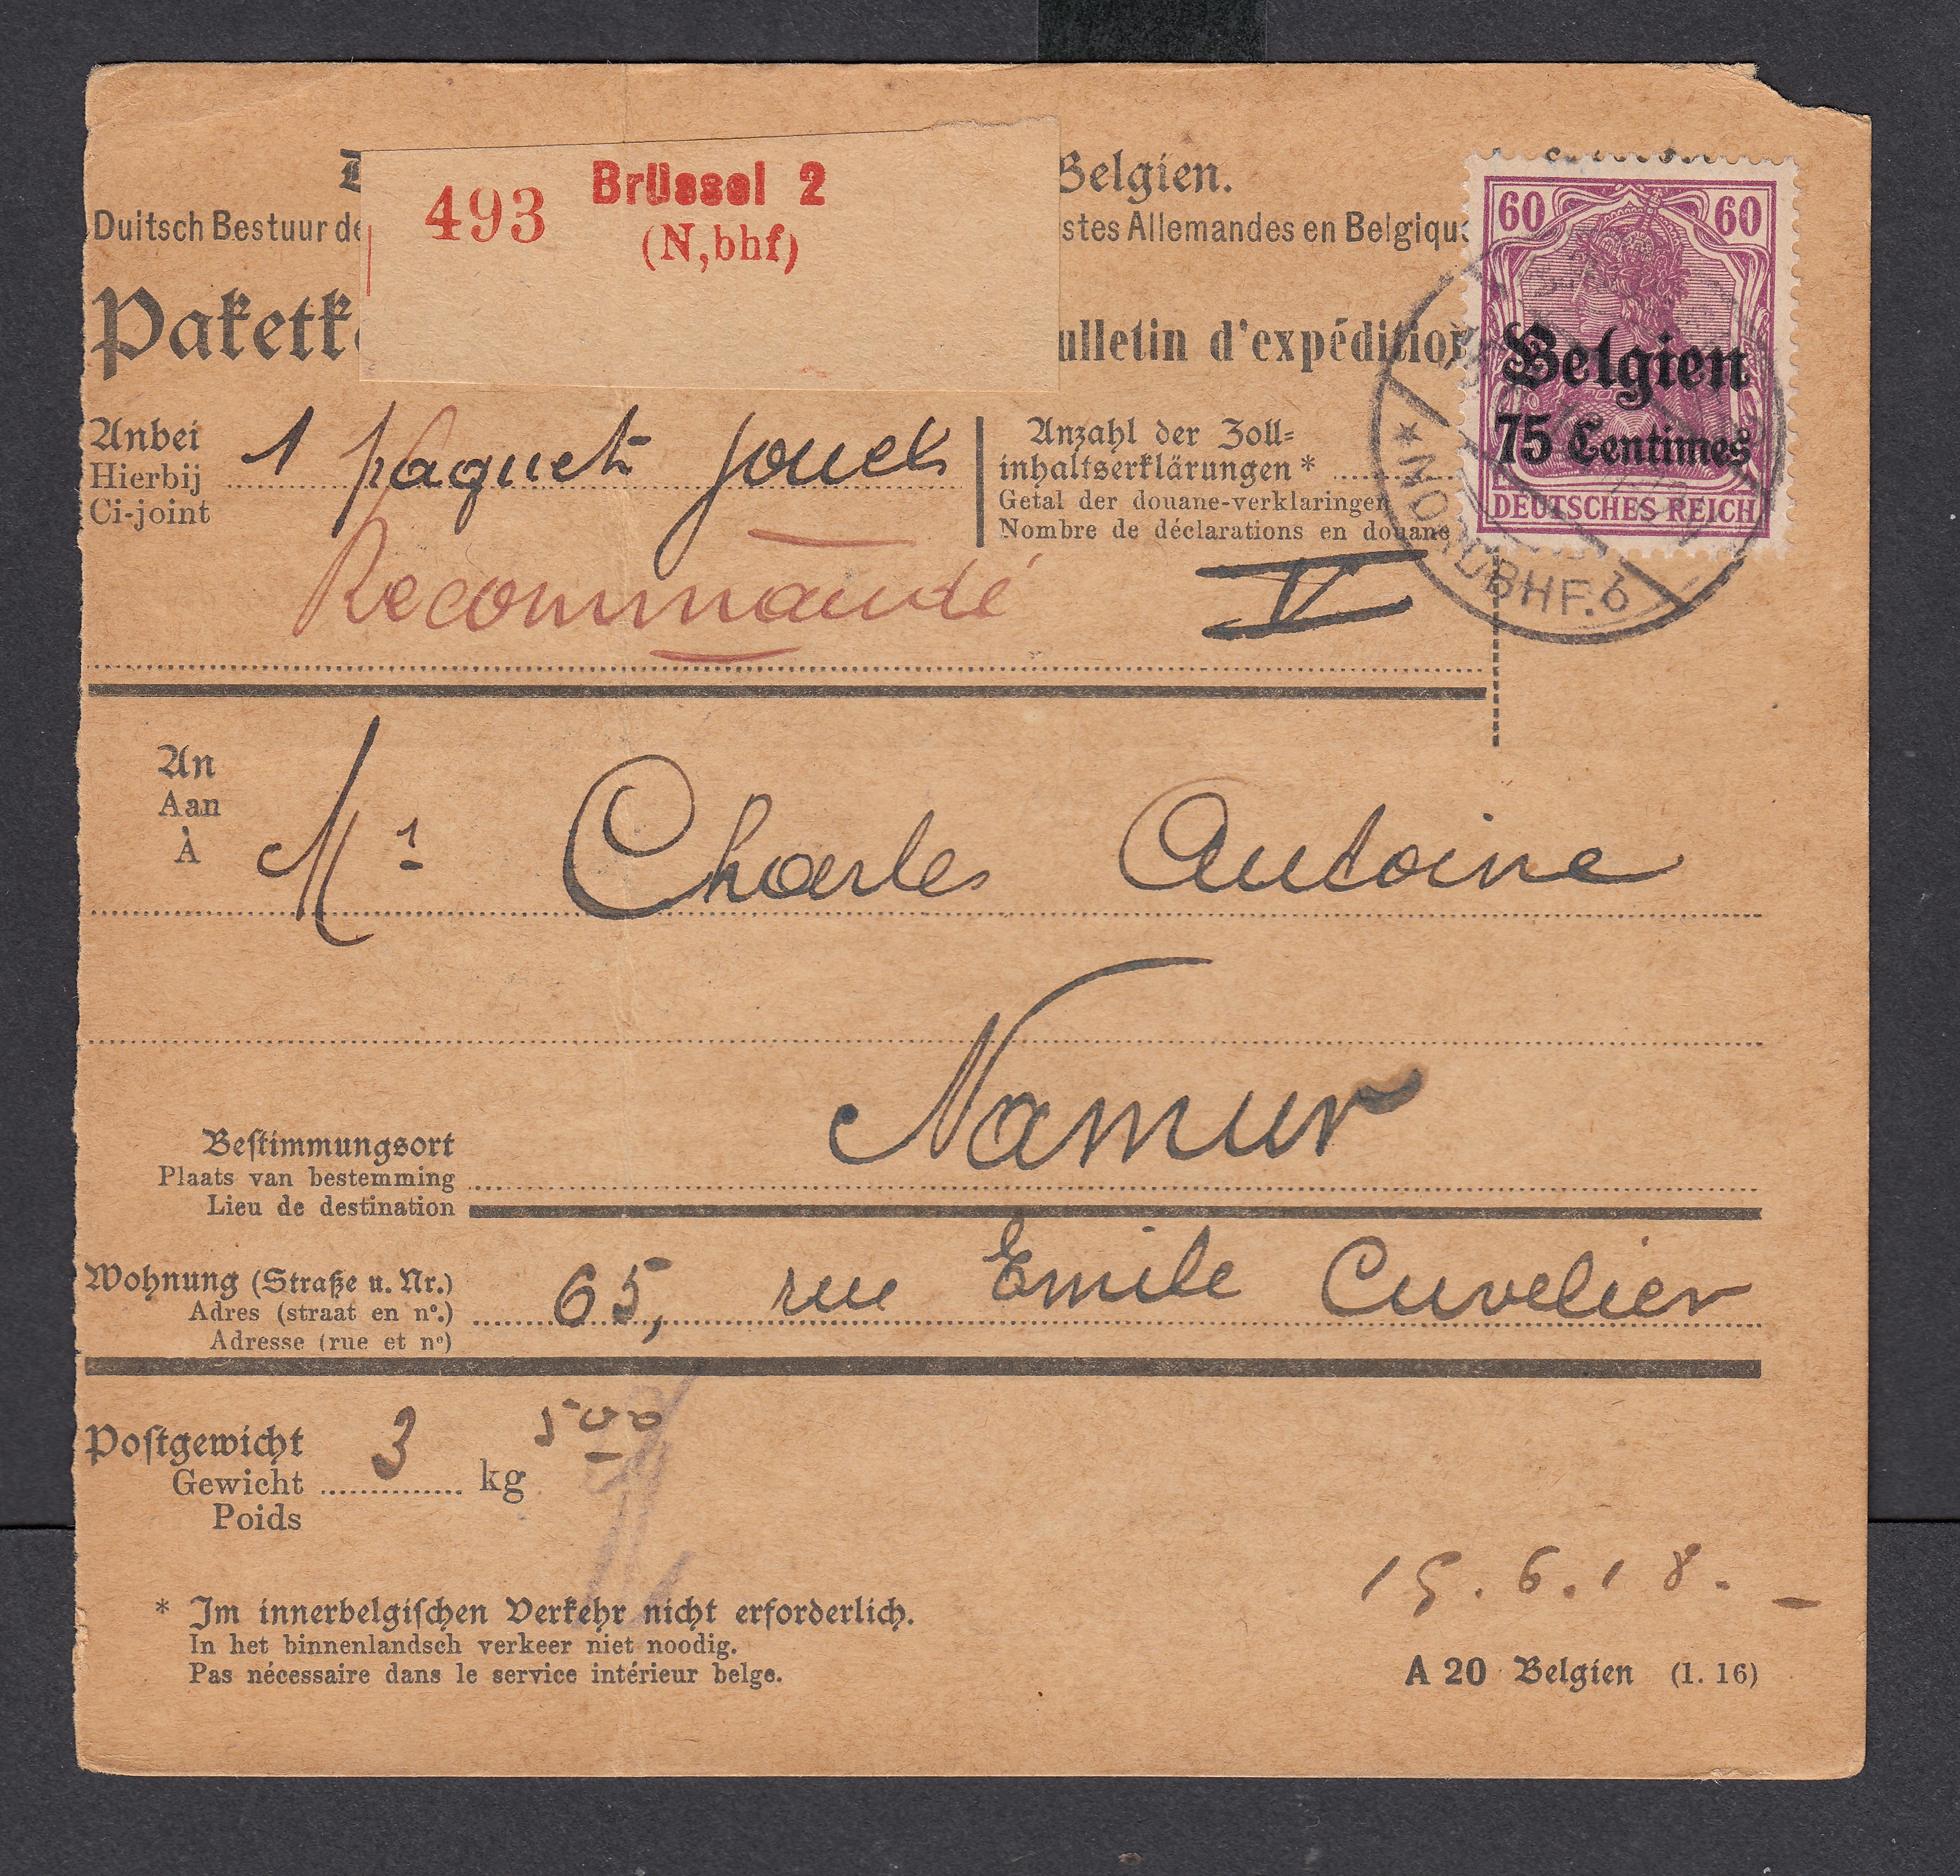 493 Brüssel 2
(N,bhf)
Belgien.
Duitsch Bestuur
Allemandes en Belgique
d'expédition
Anbei
Hierbij
Ci-joint
1 paquet jouets
Recommandé
Anzahl der Zoll=
inhaltserklärungen *
Getal der douane-verklaringen
Nombre de déclarations en douane
V
60 60
Belgien
75 Centimes
DEUTSCHES REICH
* NORDBHF. 6
An
Aan
À
Mr Charles Antoine
Namur
Bestimmungsort
Plaats van bestemming
Lieu de destination
Wohnung (Straße u. Nr.)
Adres (straat en nº.)
Adresse (rue et nº)
65, rue Emile Cuvelier
Postgewicht
Gewicht
Poids
3 kg 500
15.6.18.
* Im innerbelgischen Verkehr nicht erforderlich.
In het binnenlandsch verkeer niet noodig.
Pas nécessaire dans le service intérieur belge.
A 20 Belgien (1. 16)